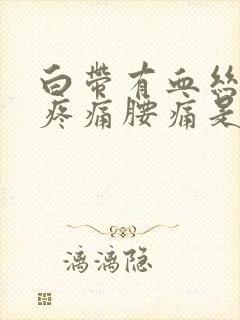 白带有血丝
疼痛腰痛是
漓漓隐